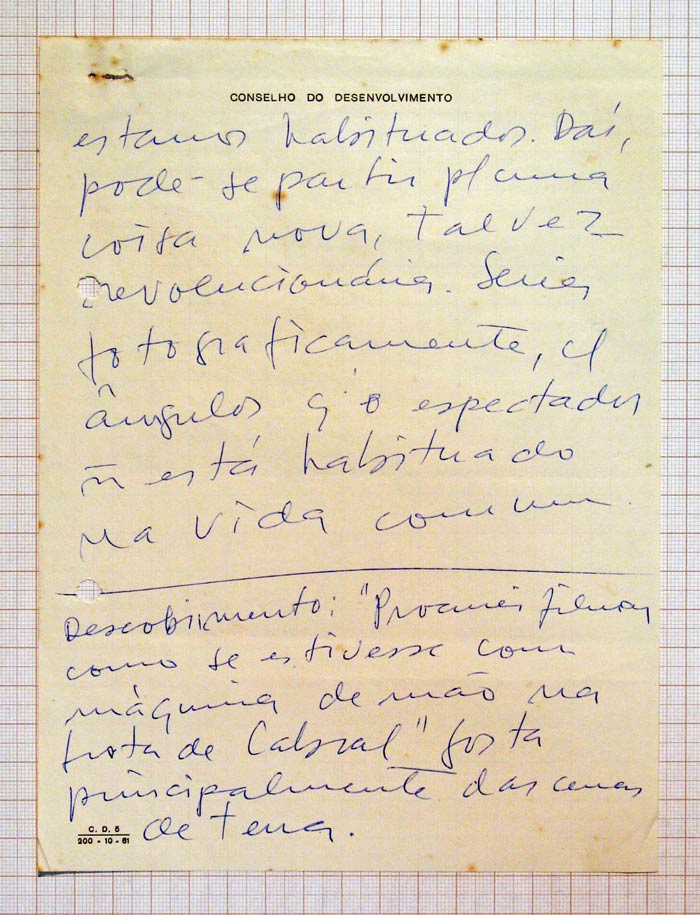 CONSELHO DO DESENVOLVIMENTO
estamos habituados. Daí,
pode-se partir p/ uma
coisa nova, talvez
revolucionária. Seria,
fotograficamente, c/
ângulos q' o espectador
ñ está habituado
na vida comum.
Descobrimento: "Procurei filmar
como se estivesse com
máquina de mão na
frota de Cabral" gosta
principalmente das cenas
de terra.
C. D. 5
200 - 10 - 61